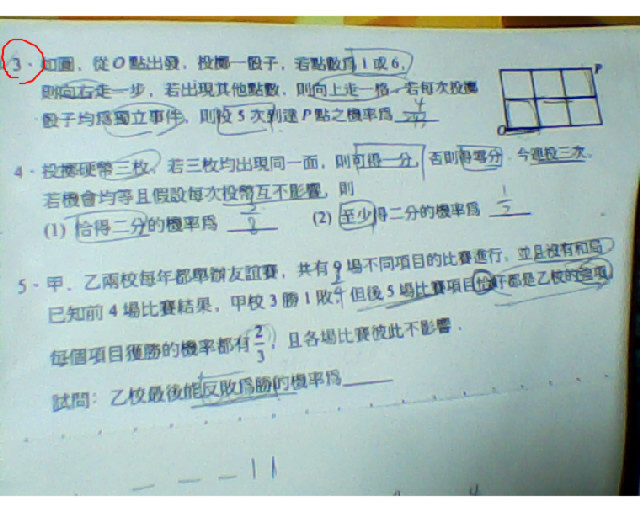 3. 如圖，從O點出發，投擲一骰子，若點數為1或6，
則向右走一步，若出現其他點數，則向上走一格，若每次投擲
骰子均為獨立事件，則投5次到達P點之機率為 4
P
O
4. 投擲硬幣三枚，若三枚均出現同一面，則可得一分，否則得零分，今連投三次，
若機會均等且假設每次投幣互不影響，則
(1) 恰得二分的機率為 8 (2) 至少得二分的機率為 1/2
5. 甲、乙兩校每年都舉辦友誼賽，共有9場不同項目的比賽進行，並且沒有和局，
已知前4場比賽結果，甲校3勝1敗，但後5場比賽項目恰好都是乙校的強項，
每個項目獲勝的機率都有2/3，且各場比賽彼此不影響．
試問：乙校最後能反敗為勝的機率為